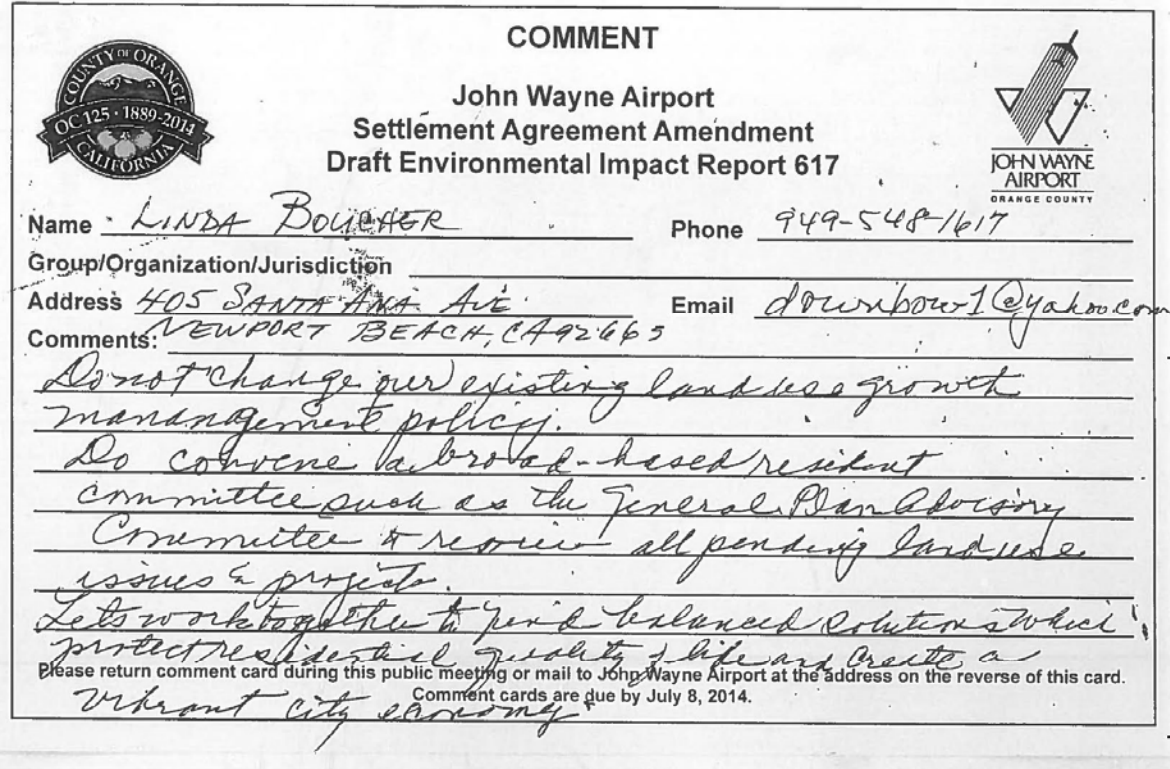 COMMENT
COUNTY OF ORANGE
OC 125 · 1889-2014
CALIFORNIA
John Wayne Airport
Settlement Agreement Amendment
Draft Environmental Impact Report 617
JOHN WAYNE
AIRPORT
ORANGE COUNTY
Name LINDA BOUCHER
Phone 949-548-1617
Group/Organization/Jurisdiction
Address 405 SANTA ANA AVE
Email downbow1@yahoo.com
NEWPORT BEACH, CA 92663
Comments:
Do not change our existing land use growth
manangement policy.
Do convene a broad-based resident
committee such as the General Plan Advisory
Committee to review all pending land use
issues & projects.
Lets work together to find balanced solutions which
protect residential quality of life and create a
Please return comment card during this public meeting or mail to John Wayne Airport at the address on the reverse of this card.
vibrant city economy.
Comment cards are due by July 8, 2014.